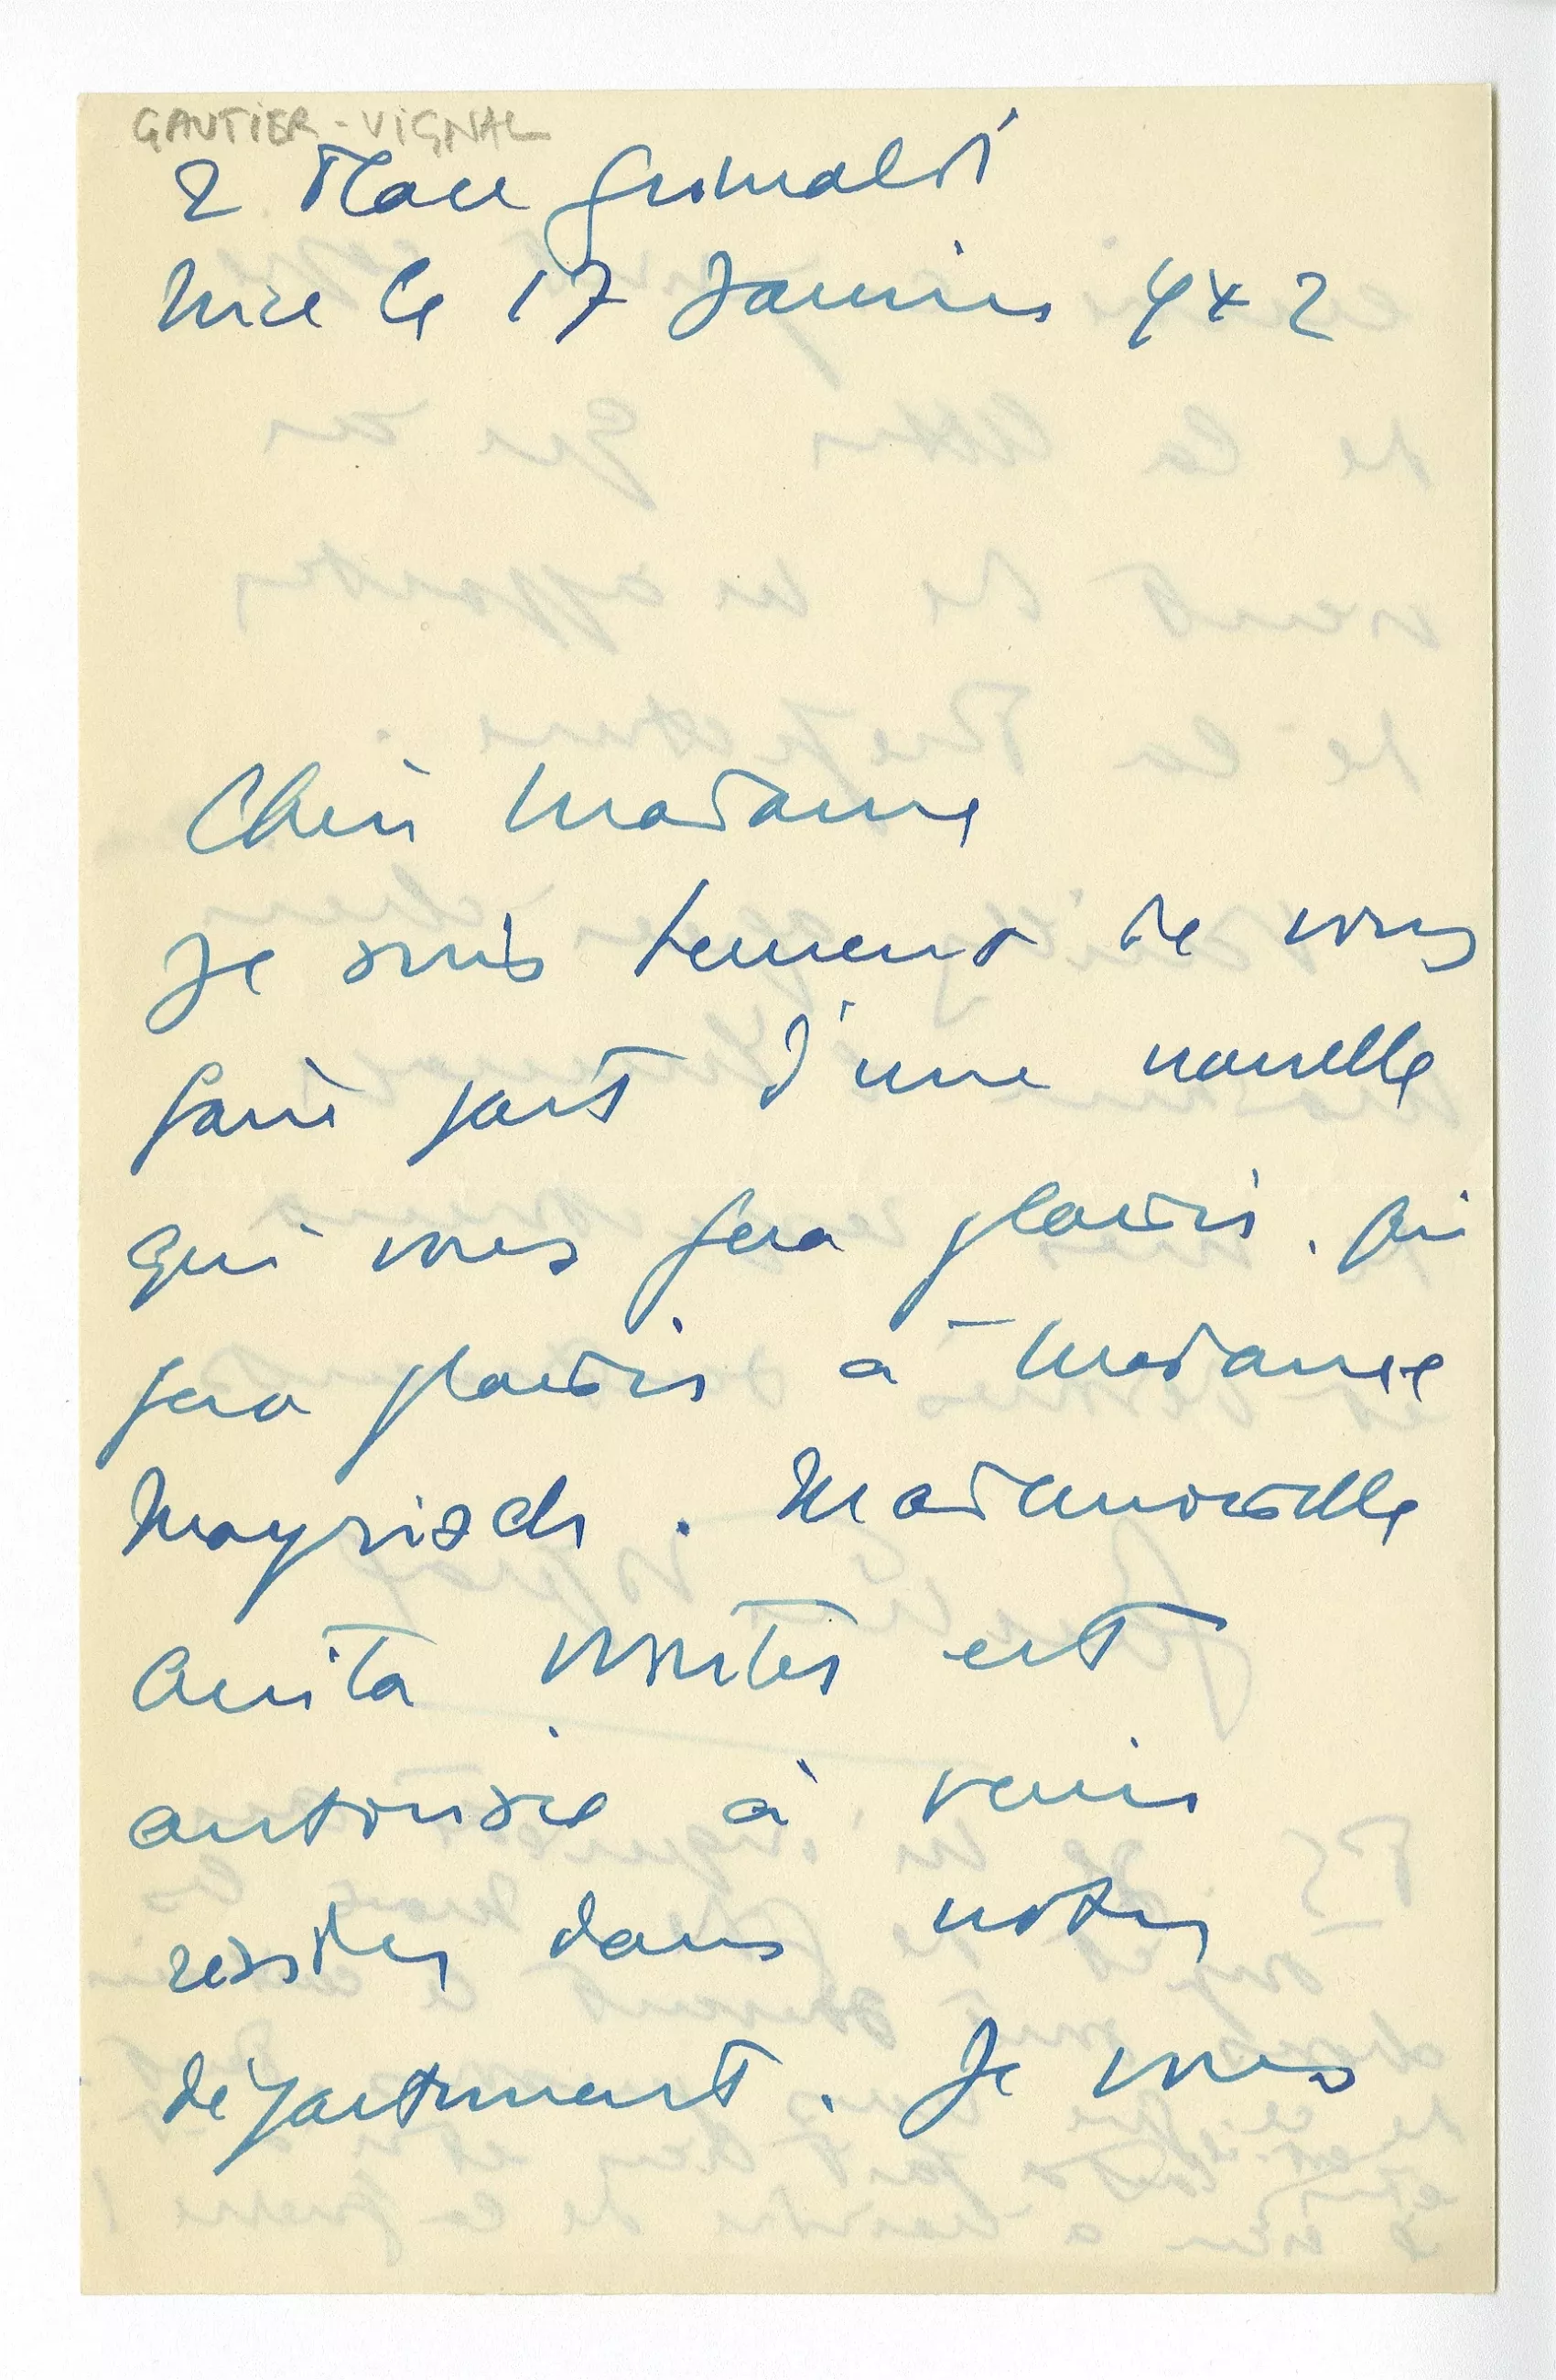 GAUTIER-VIGNAL
2 Place Grimaldi
Nice le 17 Janvier 42
Chère Madame
Je suis heureux de vous
faire part d'une nouvelle
qui vous fera plaisir. Qui
fera plaisir à Madame
Mayrisch. Mademoiselle
Anita est
autorisée à venir
résider dans notre
département. Je vous